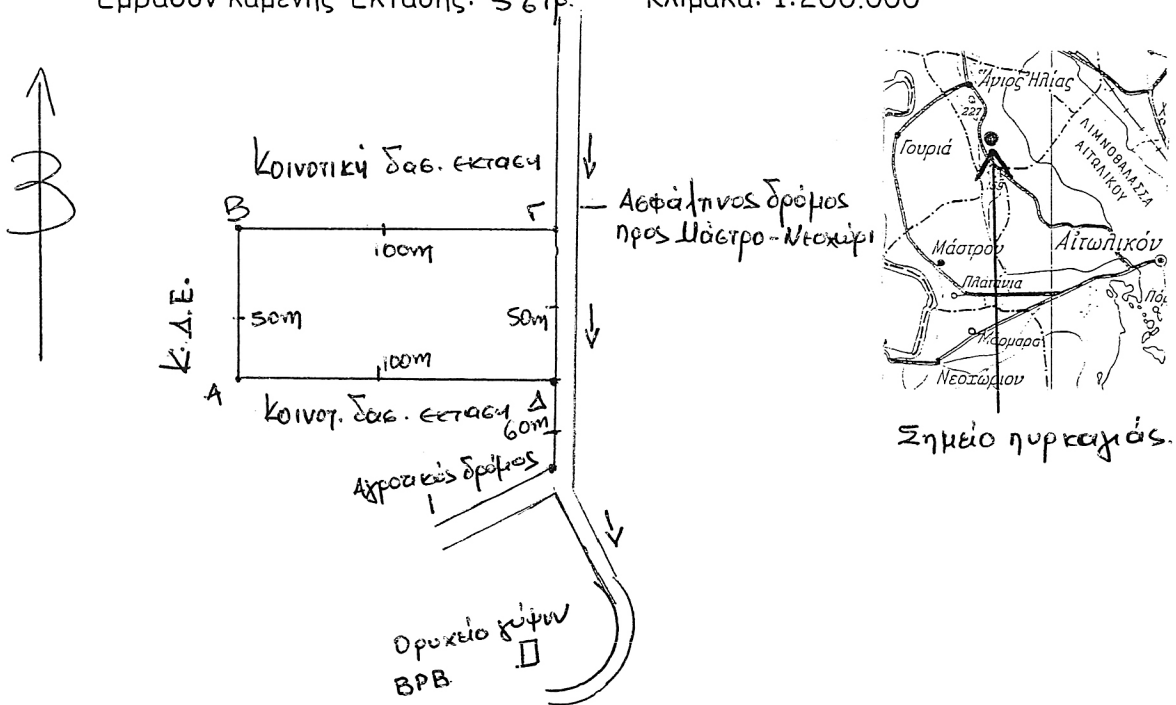 Εμβαδόν Καμένης Έκτασης: 5 στρ. Κλίμακα: 1:200.000
Β
Κοινοτική δασ. εκταση
Β
Γ
100m
Ασφάλτινος δρόμος
προς Μάστρο-Νεοχώρι
Κ.Δ.Ε.
50m
50m
100m
Α
Δ
Κοινοτ. δασ. εκταση
60m
Αγροτικός δρόμος
Ορυχείο γύψου
ΒΡΒ
Άγιος Ήλίας
227
Γουριά
ΛΙΜΝΟΘΑΛΑΣΣΑ
ΑΙΤΩΛΙΚΟΥ
59
Μάστρον
Αἰτωλικόν
Πλατάνια
Μάρμαρα
Νεοχώριον
Σημείο πυρκαγιάς.